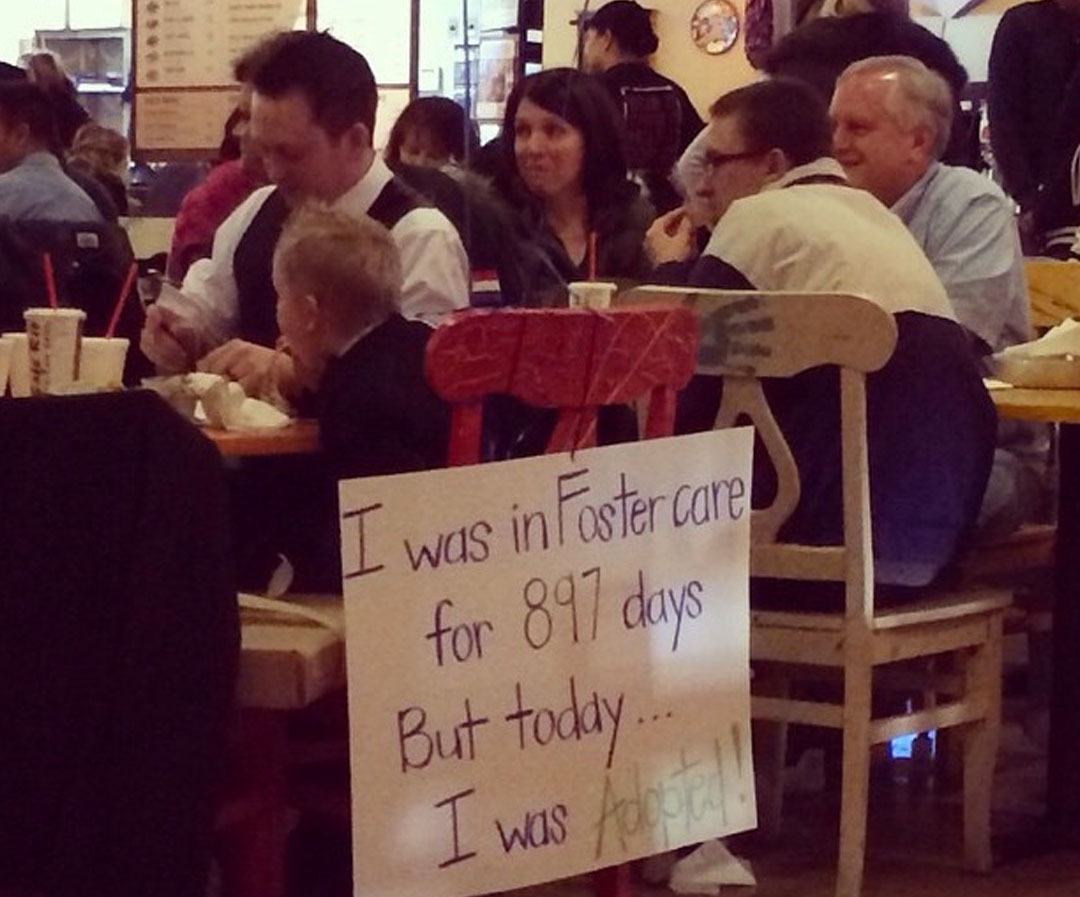 I was in Foster care
for 897 days
But today...
I was Adopted!